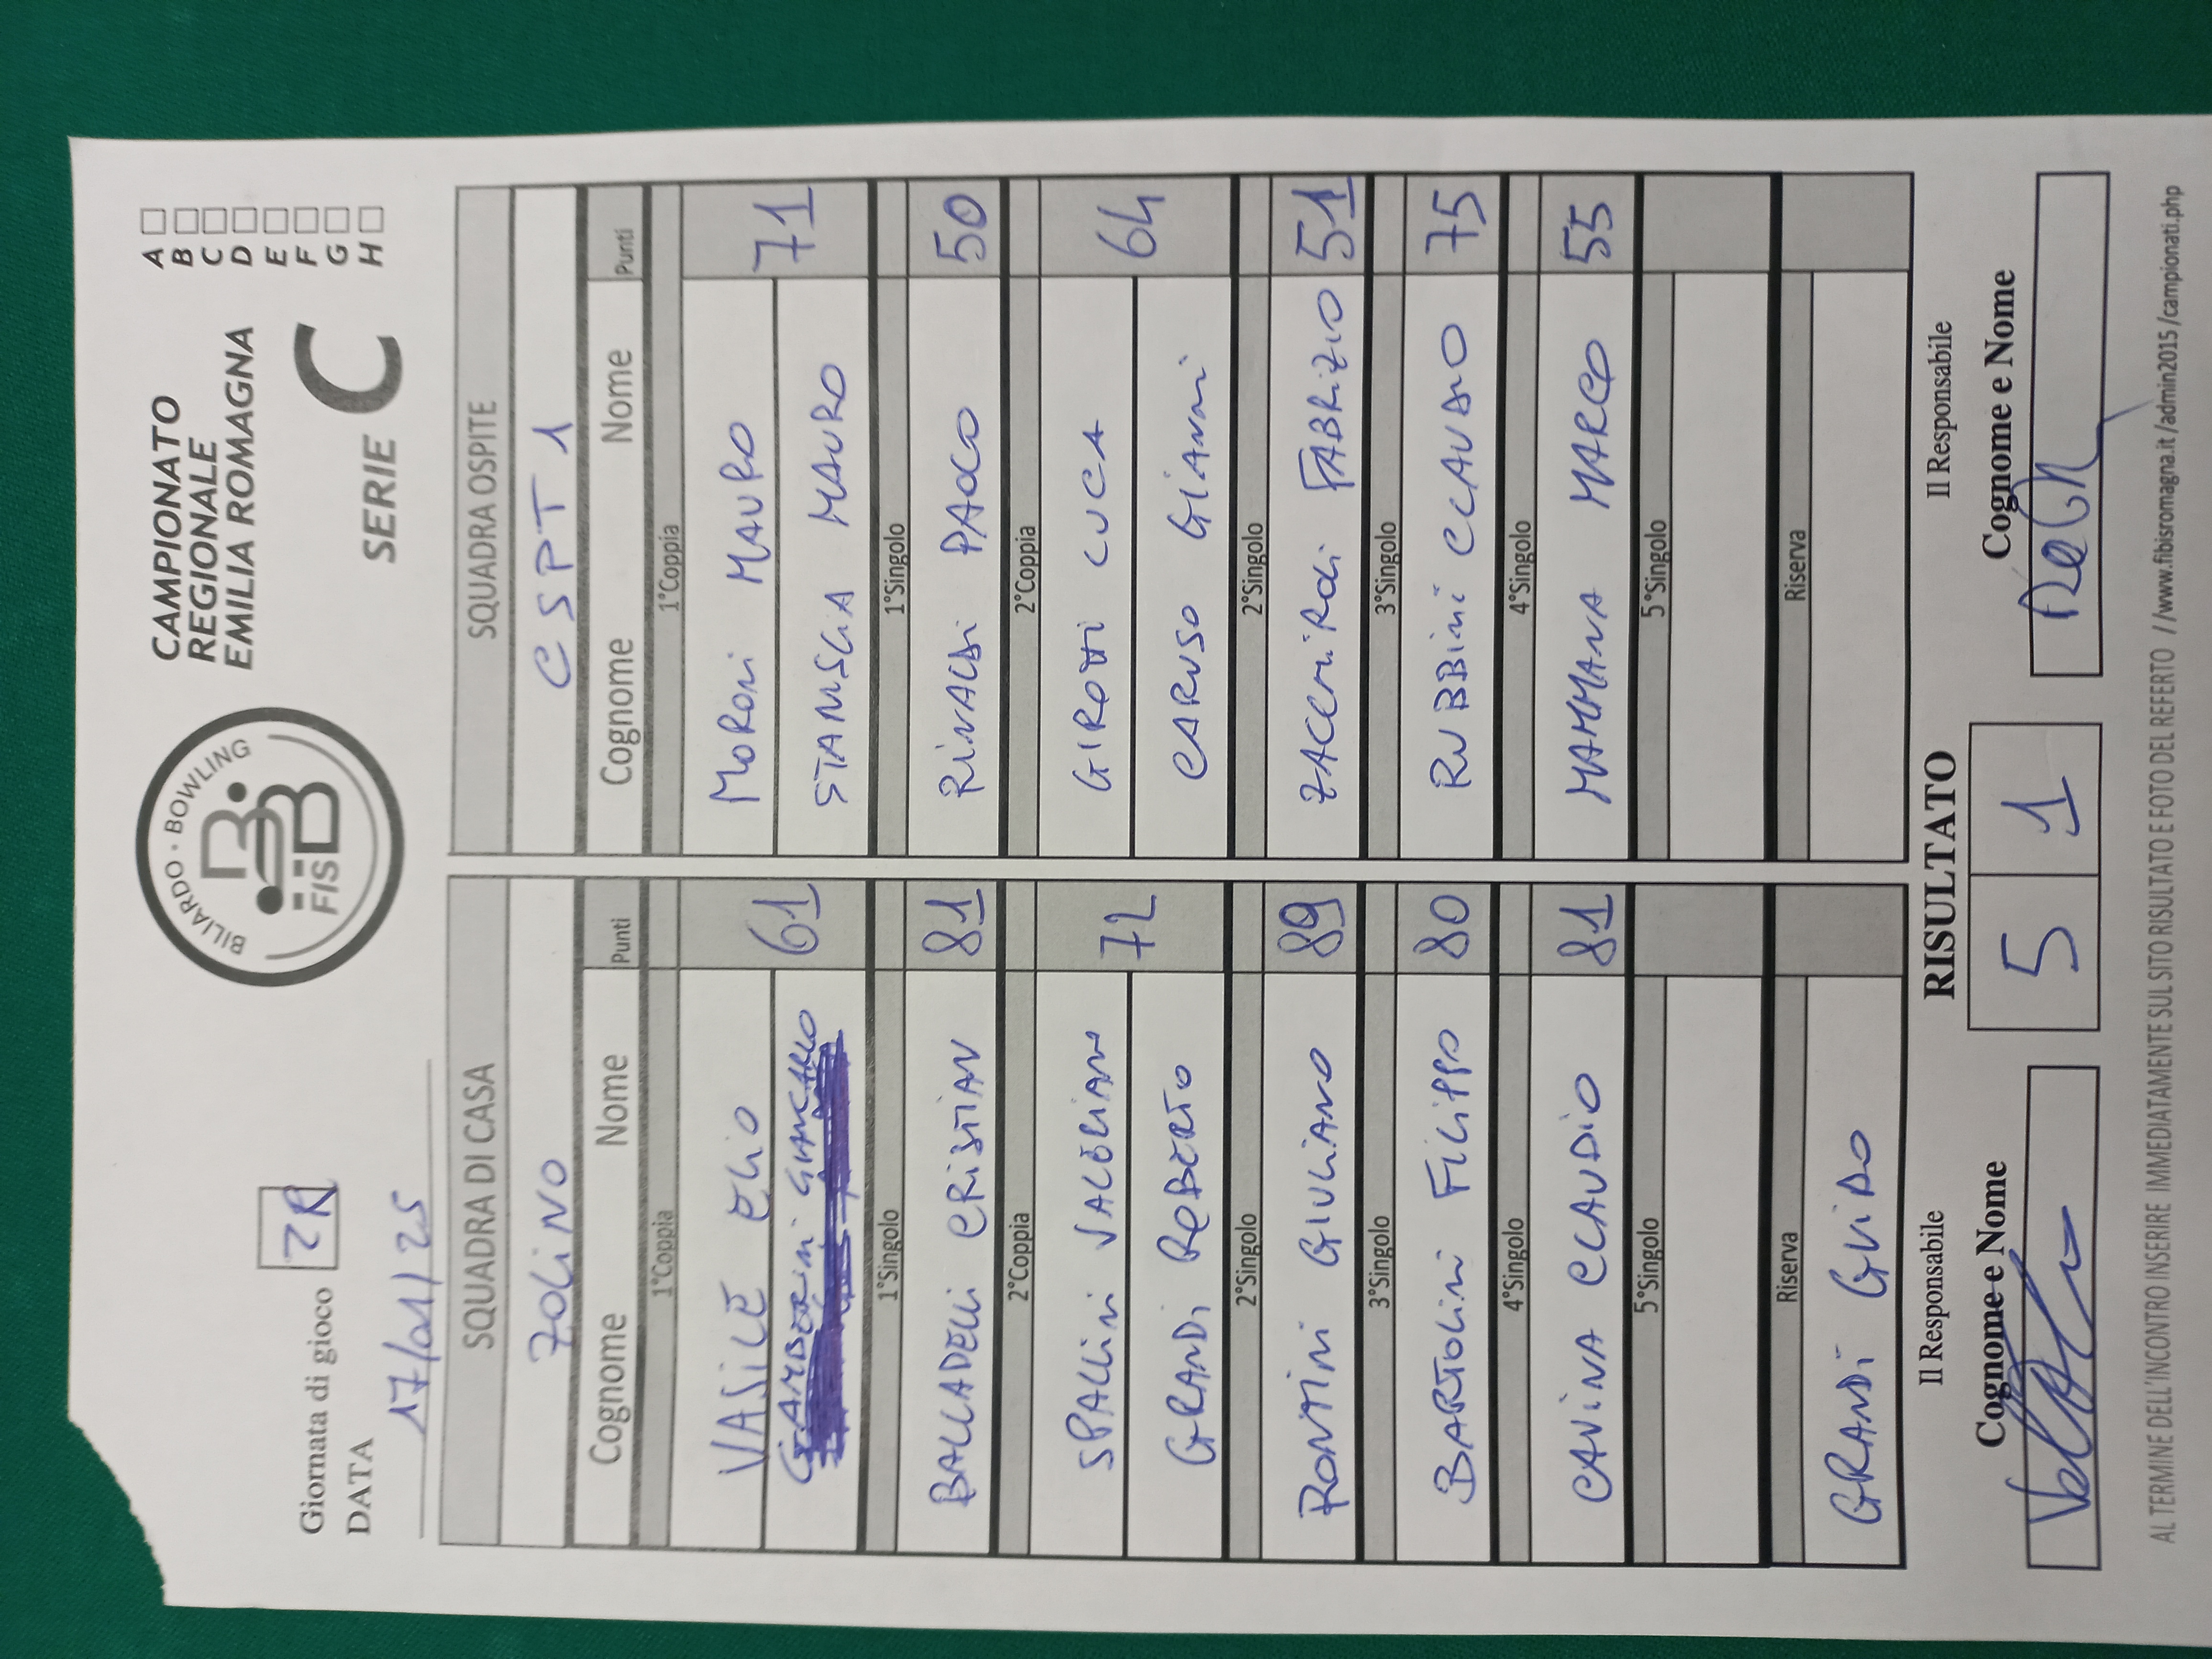 Giornata di gioco 2R
DATA
17/01/25
BILIARDO · BOWLING
FISBB
CAMPIONATO
REGIONALE
EMILIA ROMAGNA
SERIE C
A
B
C
D
E
F
G
H
SQUADRA DI CASA
ZOLINO
Cognome Nome Punti
1°Coppia
VASILE ELIO
GAMBERINI GIANCARLO
61
1°Singolo
BALLADELLI CRISTIAN 81
2°Coppia
SPALLINI VALERIANO
GRANDI ROBERTO
72
2°Singolo
RONTINI GIULIANO 89
3°Singolo
BARTOLINI FILIPPO 80
4°Singolo
CAVINA CLAUDIO 81
5°Singolo
Riserva
GRANDI GUIDO
SQUADRA OSPITE
CSPT 1
Cognome Nome Punti
1°Coppia
MORONI MAURO
STANSCIA MAURO
71
1°Singolo
RINALDI PAOLO 50
2°Coppia
GIROTTI LUCA
CARUSO GIANNI
64
2°Singolo
ZACCHIRODI FABRIZIO 51
3°Singolo
RUBBINI CLAUDIO 75
4°Singolo
MAMMANA MARCO 55
5°Singolo
Riserva
Il Responsabile
Cognome e Nome
RISULTATO
5 1
Il Responsabile
Cognome e Nome
AL TERMINE DELL'INCONTRO INSERIRE IMMEDIATAMENTE SUL SITO RISULTATO E FOTO DEL REFERTO //www.fibisromagna.it/admin2015/campionati.php